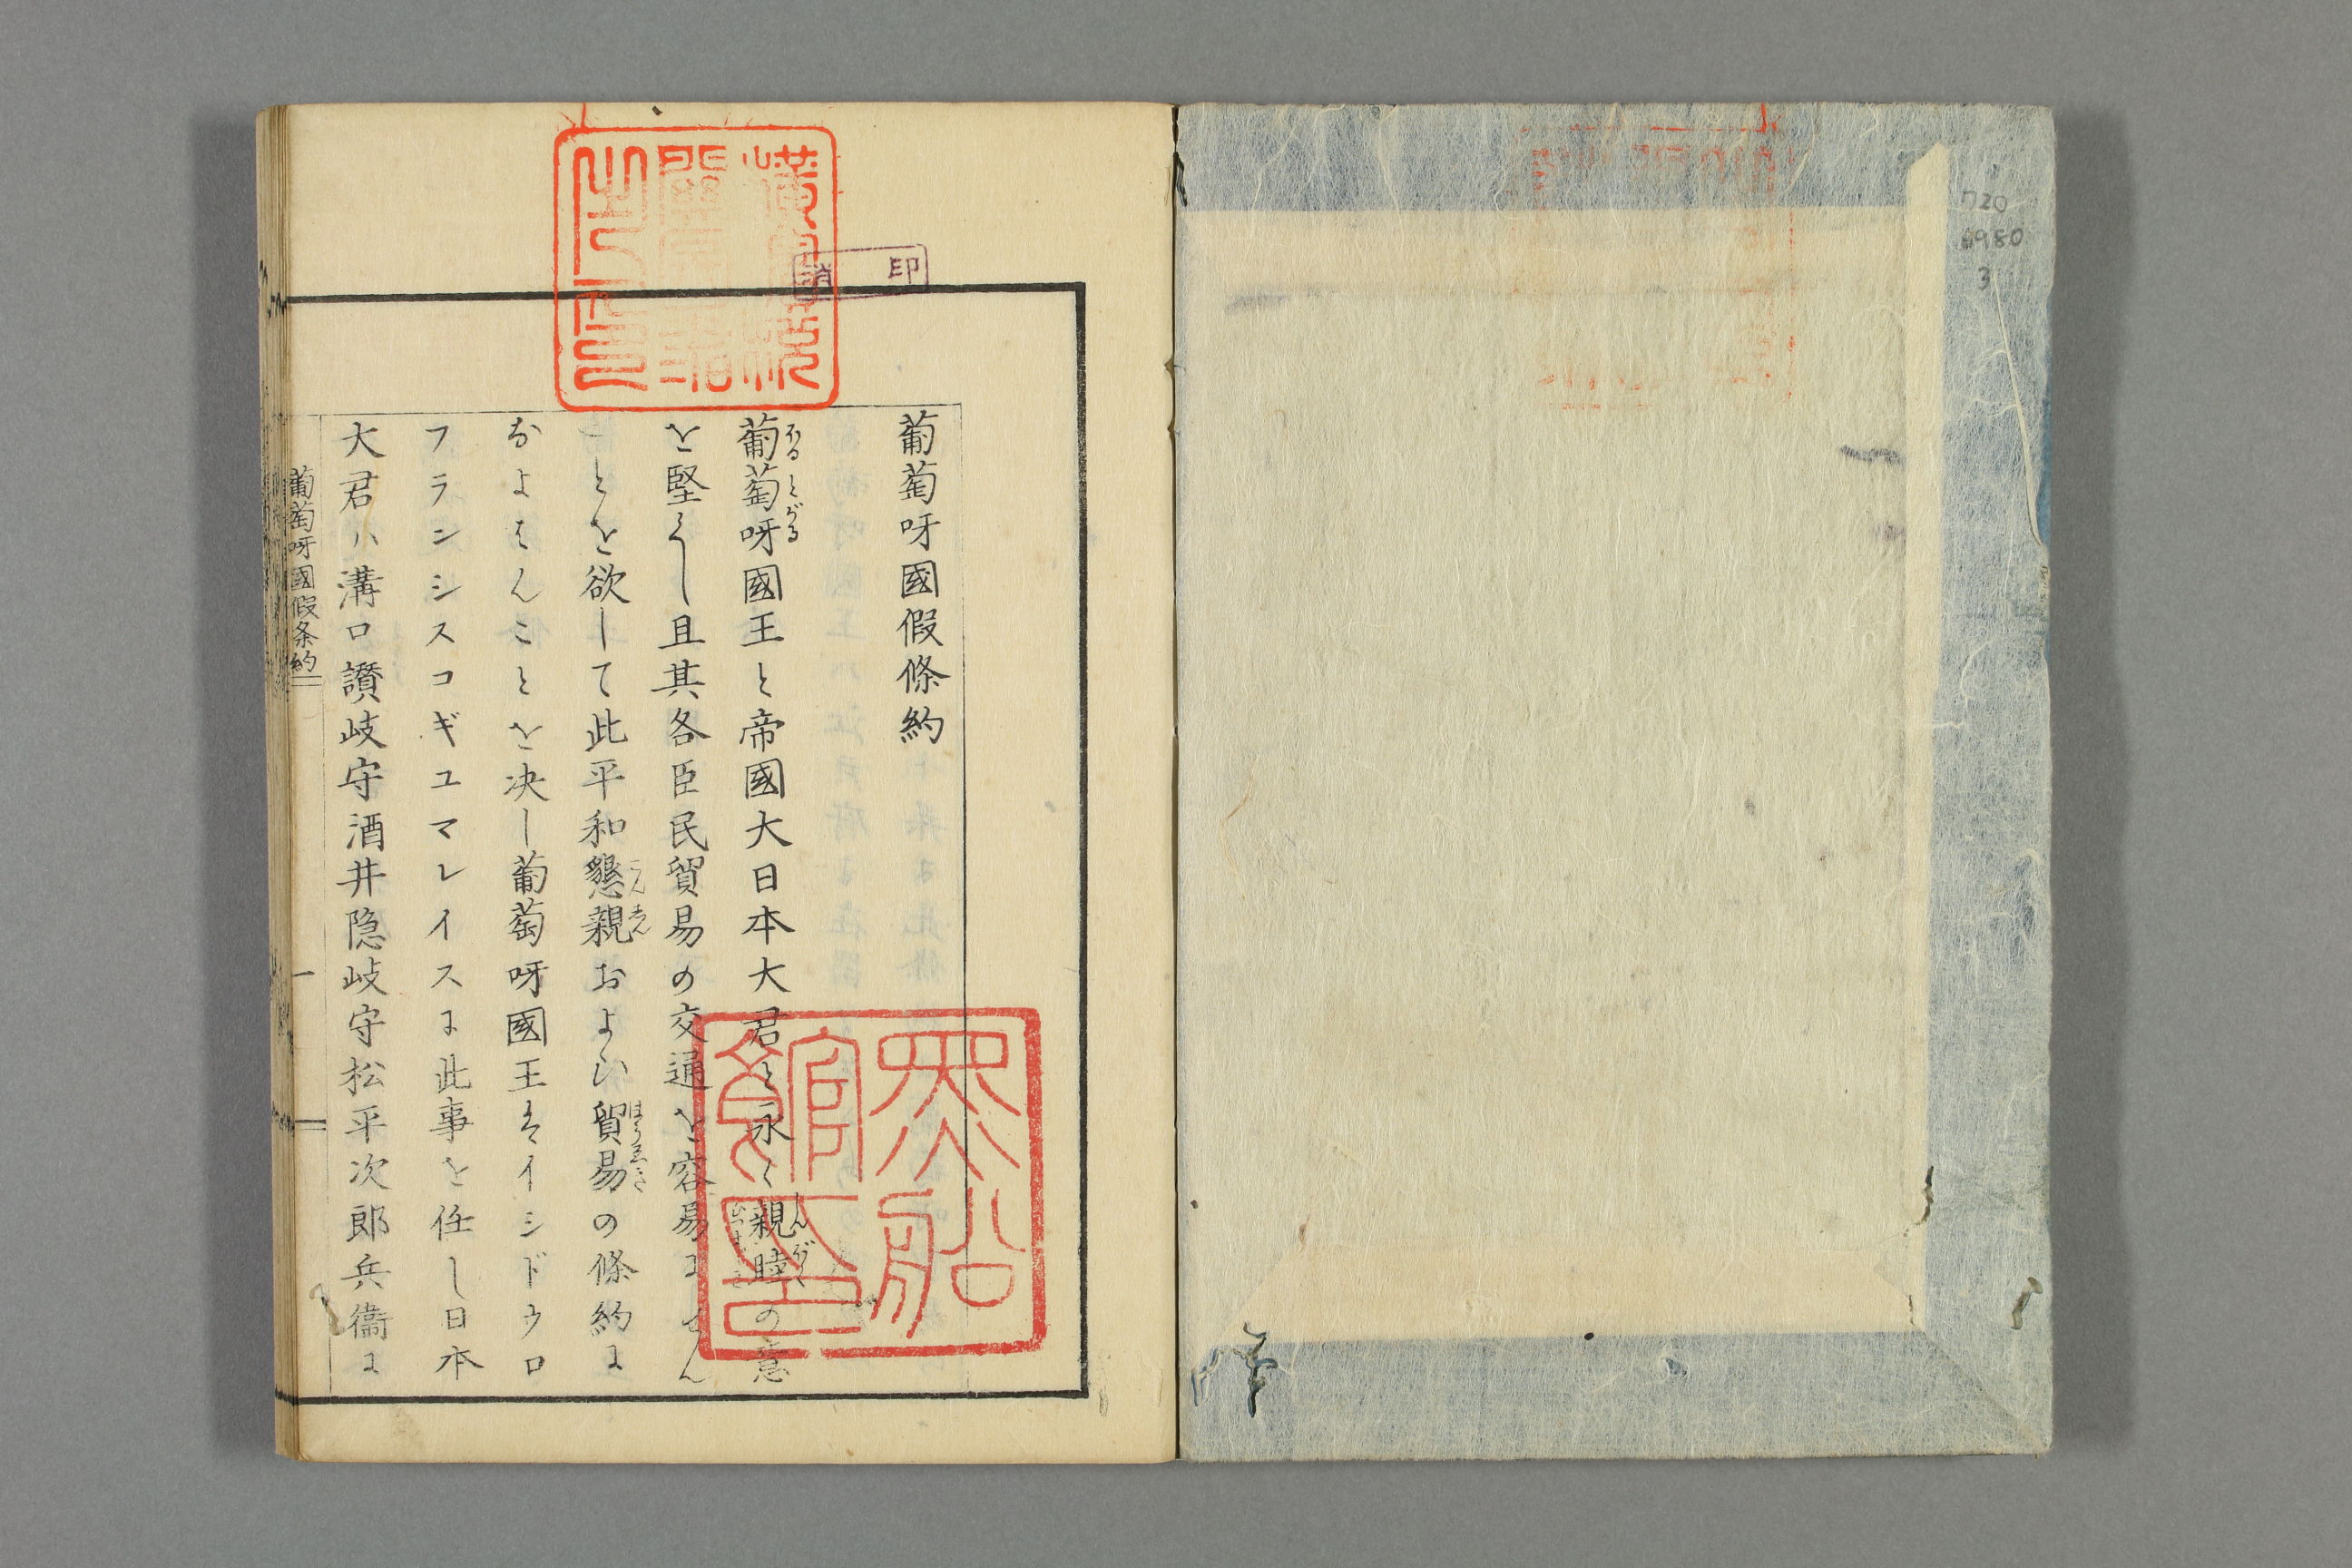 葡萄呀國假條約
葡萄呀國王と帝國大日本大君と永く親睦の意
を堅くし且其各臣民貿易の交通を容易にせん
ことを欲して此平和懇親および貿易の條約に
およはんことを決し葡萄呀國王はイシドウロ
フランシスコギユマレイスに此事を任し日本
大君ハ溝口讃岐守酒井隠岐守松平次郎兵衞に
葡萄呀國假条約
一
ほるとがる
しんぼく
こんしん
ほうゑき
横濱税關圖書之印
消印
720
6980
3